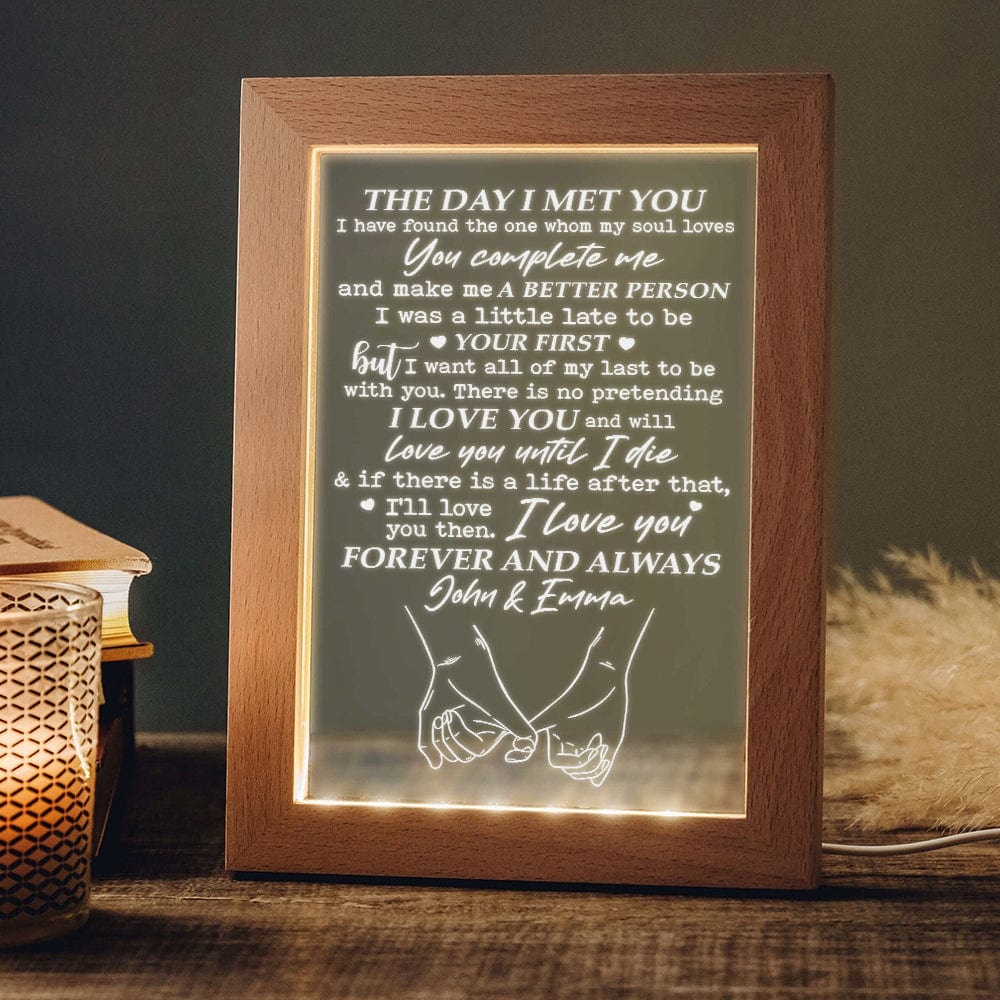 THE DAY I MET YOU
I have found the one whom my soul loves
You complete me
and make me A BETTER PERSON
I was a little late to be
YOUR FIRST
but I want all of my last to be
with you. There is no pretending
I LOVE YOU and will
love you until I die
& if there is a life after that,
I'll love
you then. I love you
FOREVER AND ALWAYS
John & Emma